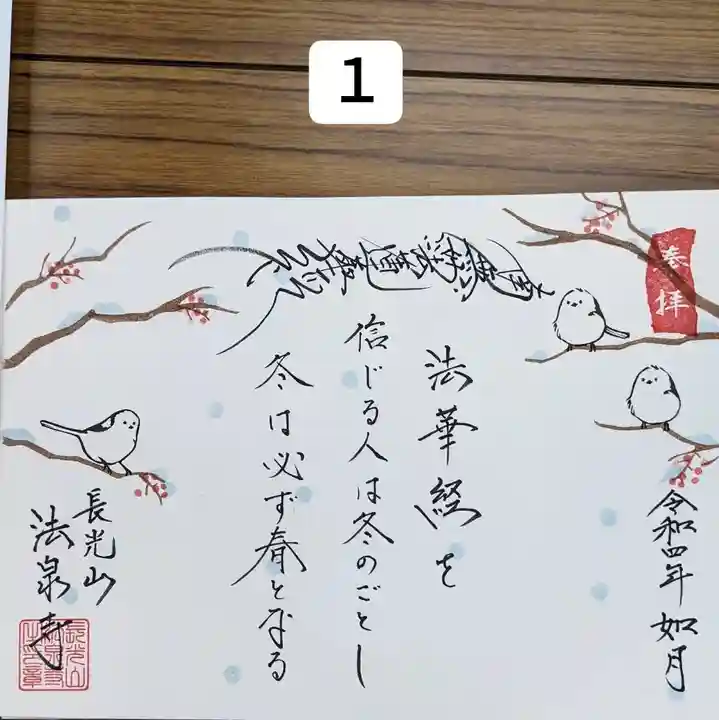 1
奉拝
令和四年 如月
南無妙法蓮華経
法華経を
信じる人は冬のごとし
冬は必ず春と成る
長光山
法泉寺